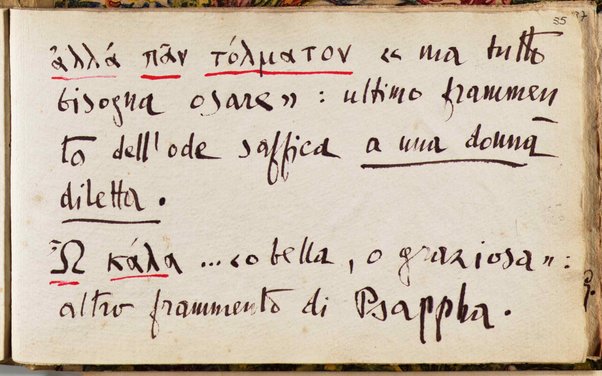 35 37
ἀλλά πᾶν τόλματον « ma tutto
bisogna osare» : ultimo frammen
to dell'ode saffica a una donna
diletta.
Ὦ κάλα ...«o bella, o graziosa» :
altro frammento di Psappha.